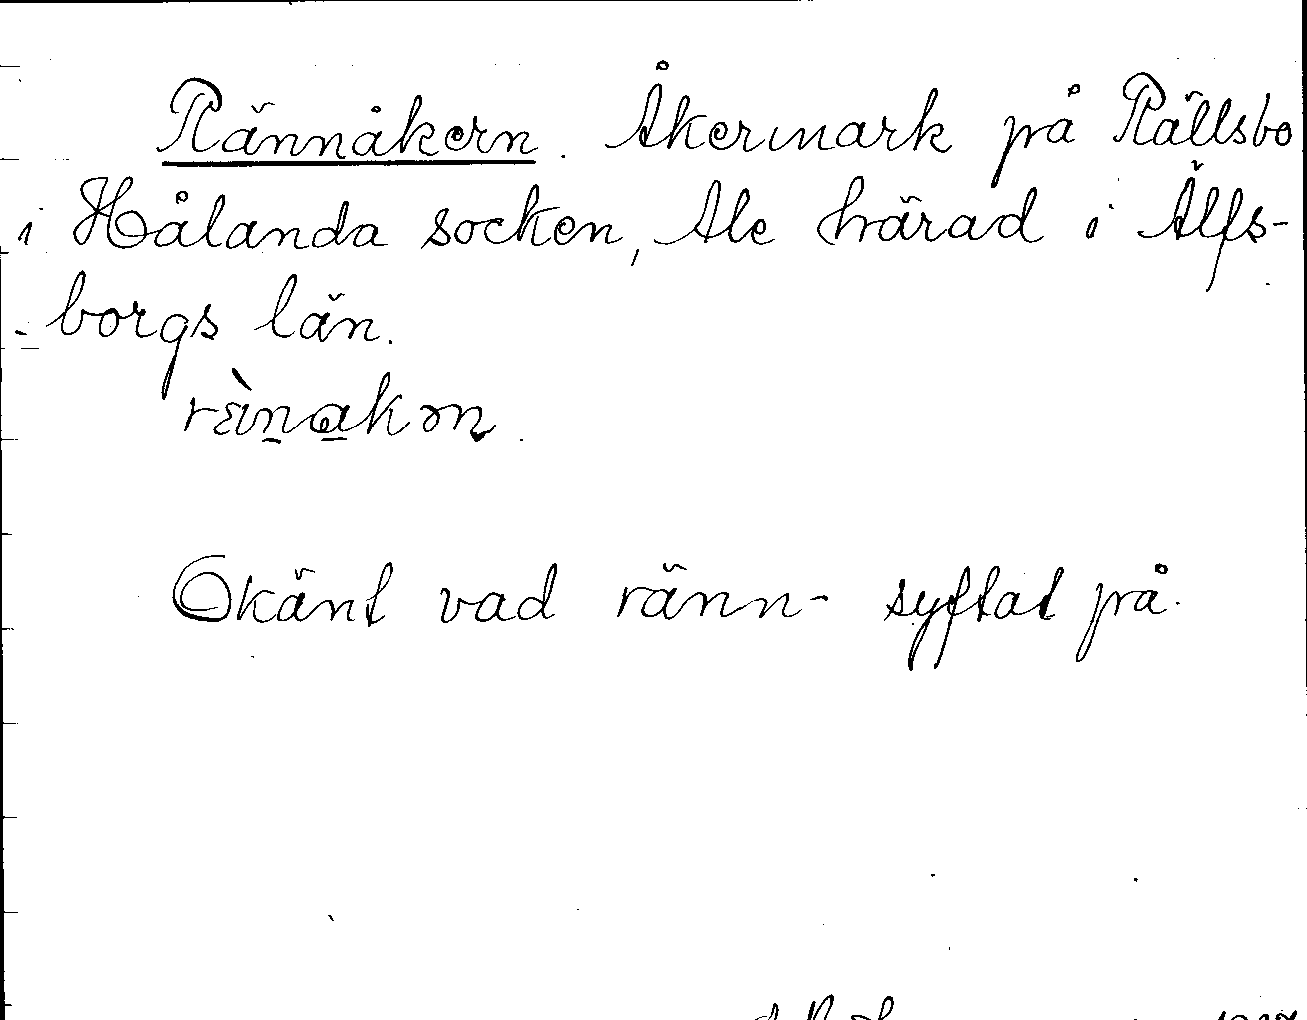 Rännåkern. Åkermark på Rällsbo
i Hålanda socken, Ale härad i Älfs-
borgs län.
Okänt vad ränn- syftat på.